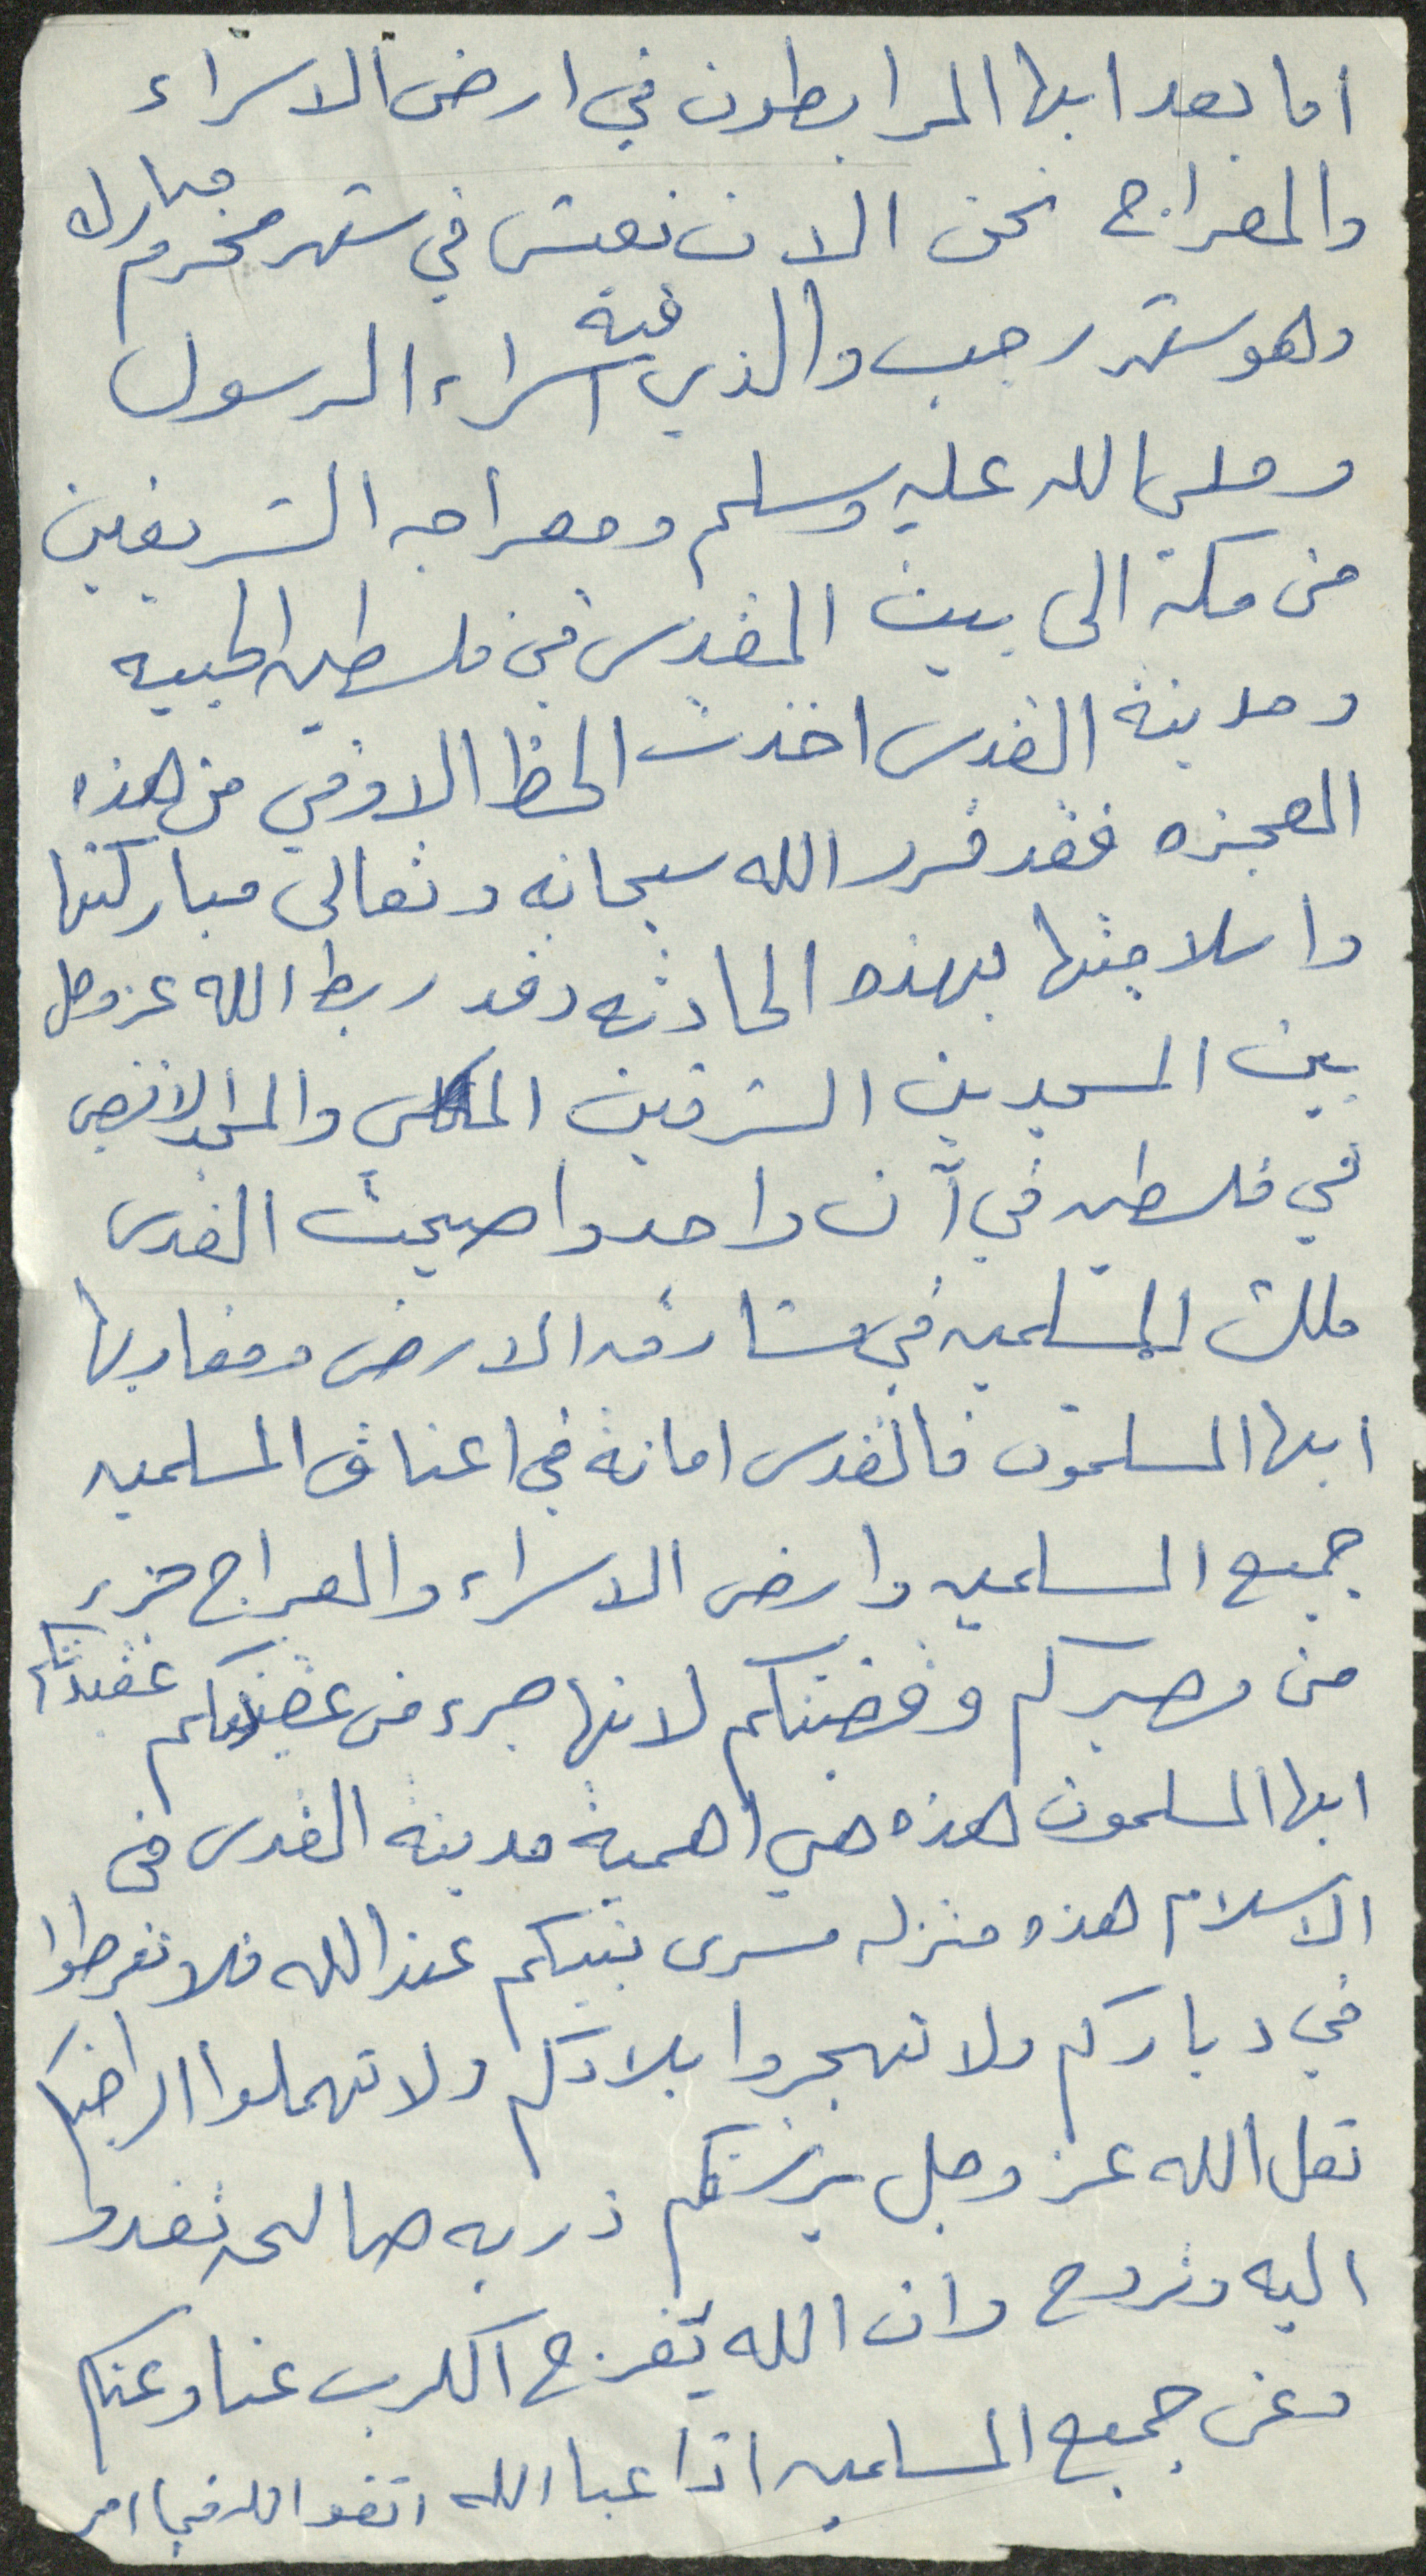 اما بعد ايها المرابطون في ارض الاسراء
والمعراج نحن الان نعيش في شهر محرم مبارك
وهو شهر رجب والذي فيه اسراء الرسول
وصلى الله عليه وسلم ومعراجه الشريفين
من مكة الى بيت المقدس في فلسطين الحبيبه
ومدينة القدس اخذت الحظ الاوفى من هذه
المعجزه فقد قرر الله سبحانه وتعالى مباركتها
واسلاميتها بهذه الحادثه وقد ربط الله عز وجل
بين المسجدين الشرفين المكي والمسجد الاقصى
في فلسطين في آن واحد واصبحت القدس
ملك المسلمين في مشارق الارض ومغاربها
ايها المسلمون فالقدس امانة في اعناق المسلمين
جميع المسلمين وارض الاسراء والمعراج جزء
من مصيركم وقضيتكم لانها جزء من عقيدتكم
ايها المسلمون هذه هي اهمية مدينة القدس في
الاسلام هذه منزله مسرى نبيكم عند الله فلا تفرطوا
في دياركم ولا تهجروا بلادكم ولا تهملوا اراضيكم
لعل الله عز وجل يرزقكم ذريه صالحه تغدوا
اليه وتروح وان الله يفرج الكرب عنا وعنكم
وعن جميع المسلمين اذا عبا الله اتقوا الله في امر